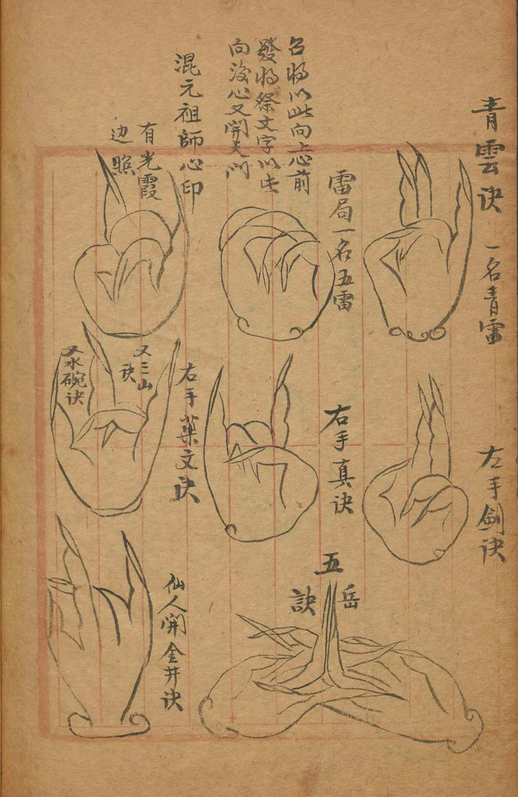 青雲诀 一名青雷
左手劍诀
雷局一名五雷
召将以此向上心前
發将祭文字以此
向後心又開天门
右手真诀
五岳訣
混元祖師心印
有光霞
边照
右手葉文诀
又三山诀
又水碗诀
仙人開金井诀